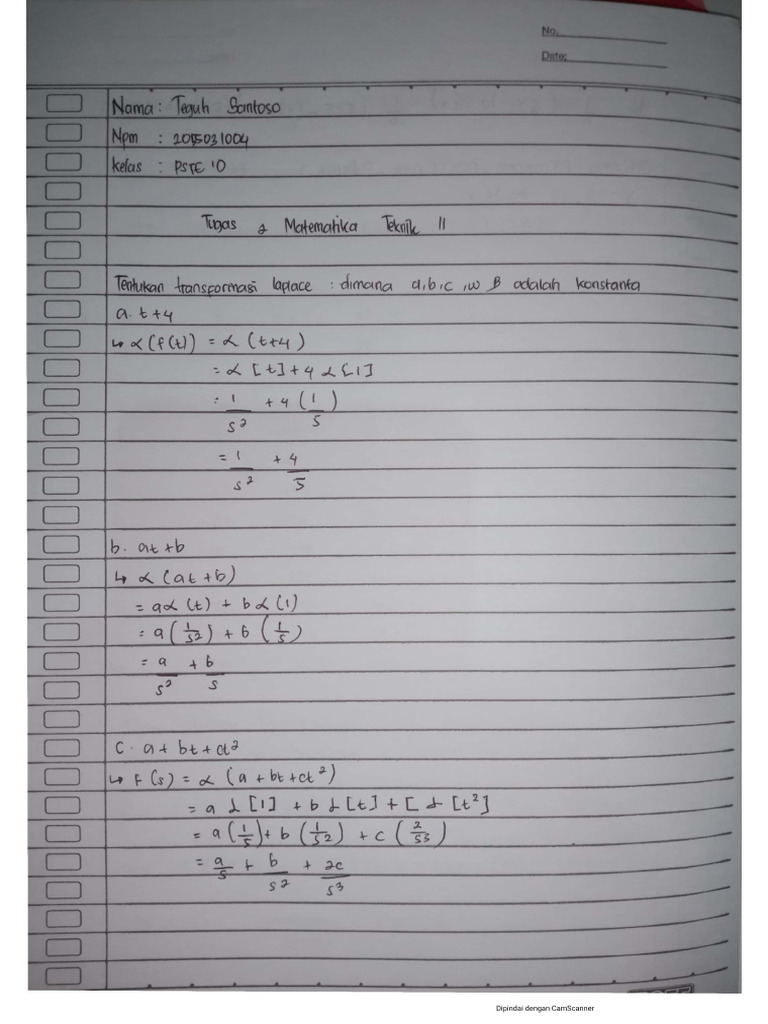 No.
Date:
Nama : Teguh Santoso
Npm : 2015031004
kelas : PSTE 'D
Tugas 2 Matematika Teknik II
Tentukan transformasi laplace : dimana a, b, c, w β adalah konstanta
a. t+4
↳ ℒ(f(t)) = ℒ (t+4)
= ℒ [t] + 4 ℒ {1]
= 1/s² + 4 (1/s)
= 1/s² + 4/s
b. at+b
↳ ℒ (at+b)
= aℒ (t) + bℒ (1)
= a(1/s2) + b (1/s)
= a/s² + b/s
C. a + bt + ct²
↳ F(s) = ℒ (a + bt + ct²)
= a ℒ [1] + b ℒ [t] + C ℒ [t²]
= a(1/s) + b (1/s2) + c (2/s3)
= a/s + b/s² + 2c/s³
Dipindai dengan CamScanner